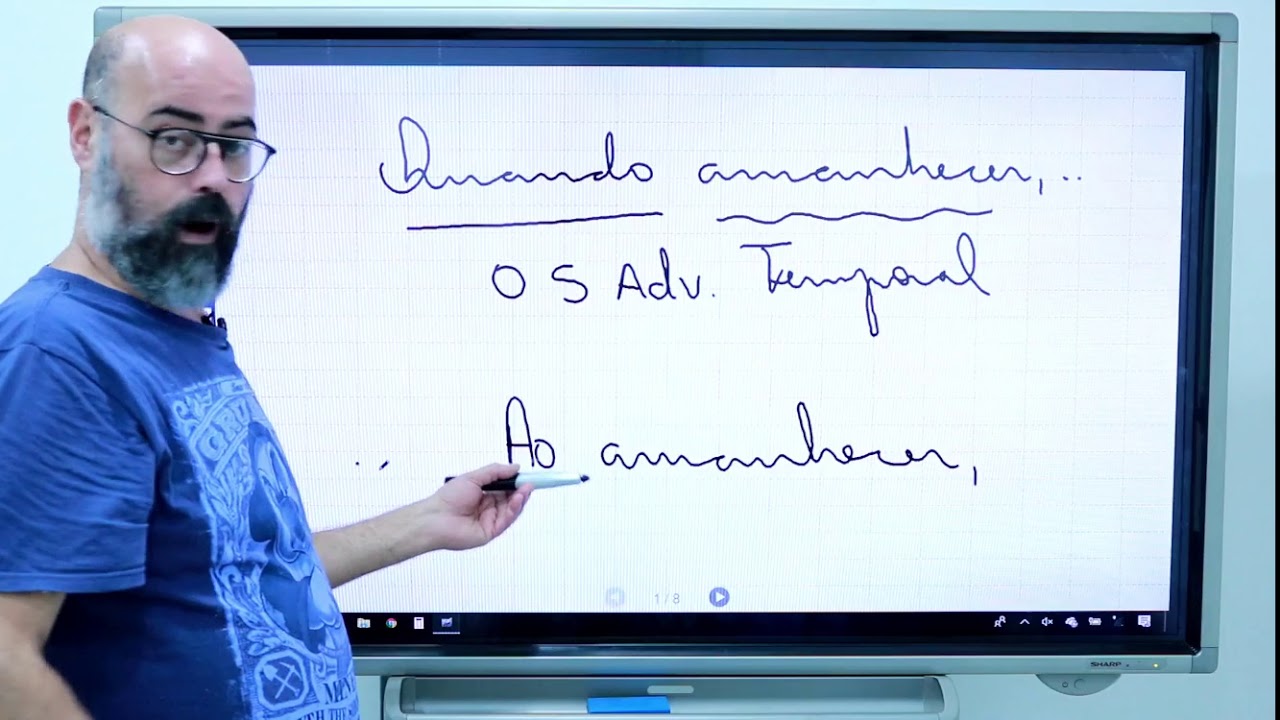 Quando amanhecer, ..
O S Adv. Temporal
Ao amanhecer,
1 / 8
SHARP